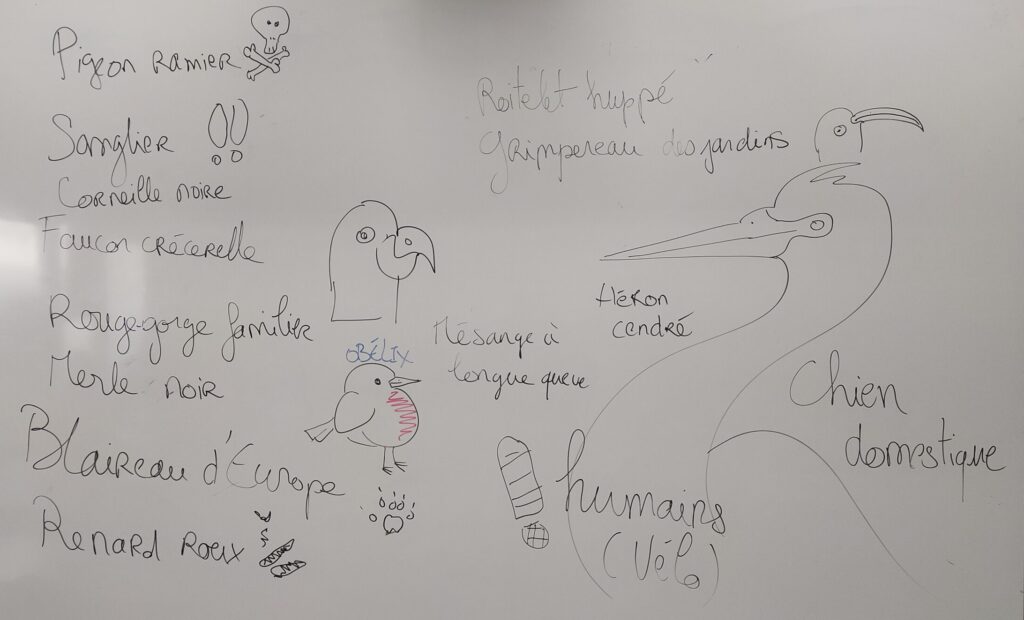 Pigeon ramier
Sanglier
Corneille noire
Faucon crécerelle
Rouge-gorge familier
Merle noir
Blaireau d'Europe
Renard roux
OBÉLIX
Mésange à
longue queue
Roitelet huppé
Grimpereau des jardins
Héron
cendré
humains
(Vélo)
Chien
domestique